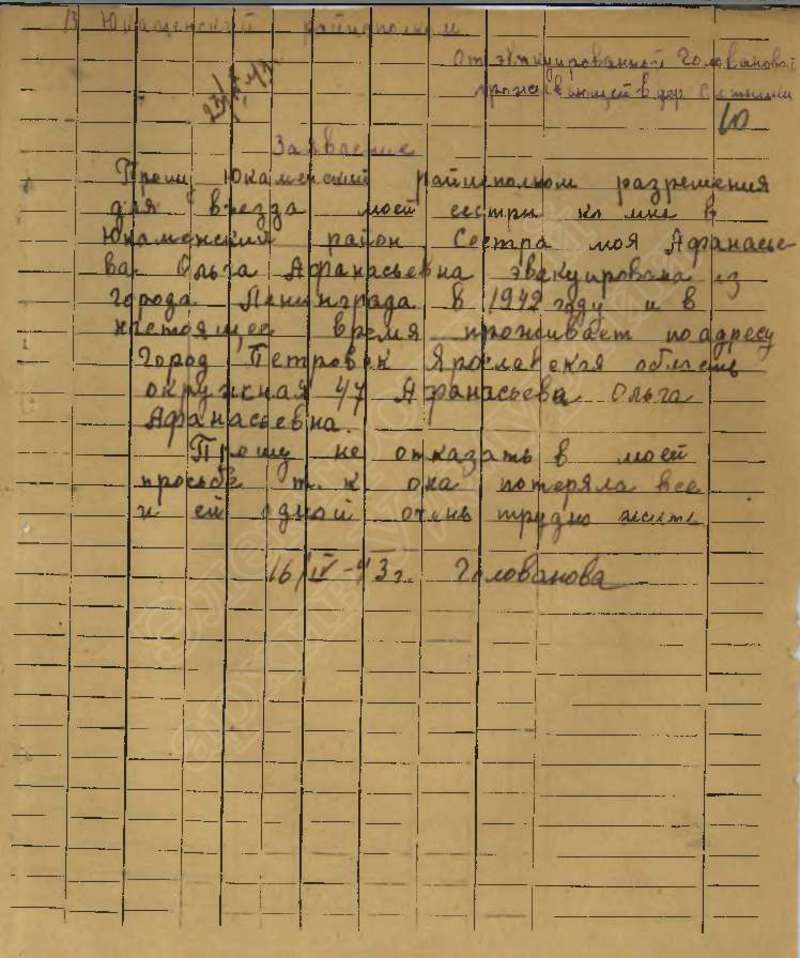 В Юкаменский райисполком
От эвакуированной Головановой
проживающей в дер
10
Заявление
Прошу Юкаменский райисполком разрешения
для вьезда моей сестры ко мне в
Юкаменский район. Сестра моя Афанасье-
ва Ольга Афанасьевна эвакуирована из
города Ленинграда в 1942 году и в
настоящее время проживает по адресу
Город Петровск Ярославская область
окружная 47 Афанасьева Ольга
Афанасьевна.
Прошу не отказать в моей
просьбе т.к она потеряла все
и ей одной очень трудно жить
16/IV-43г. Голованова